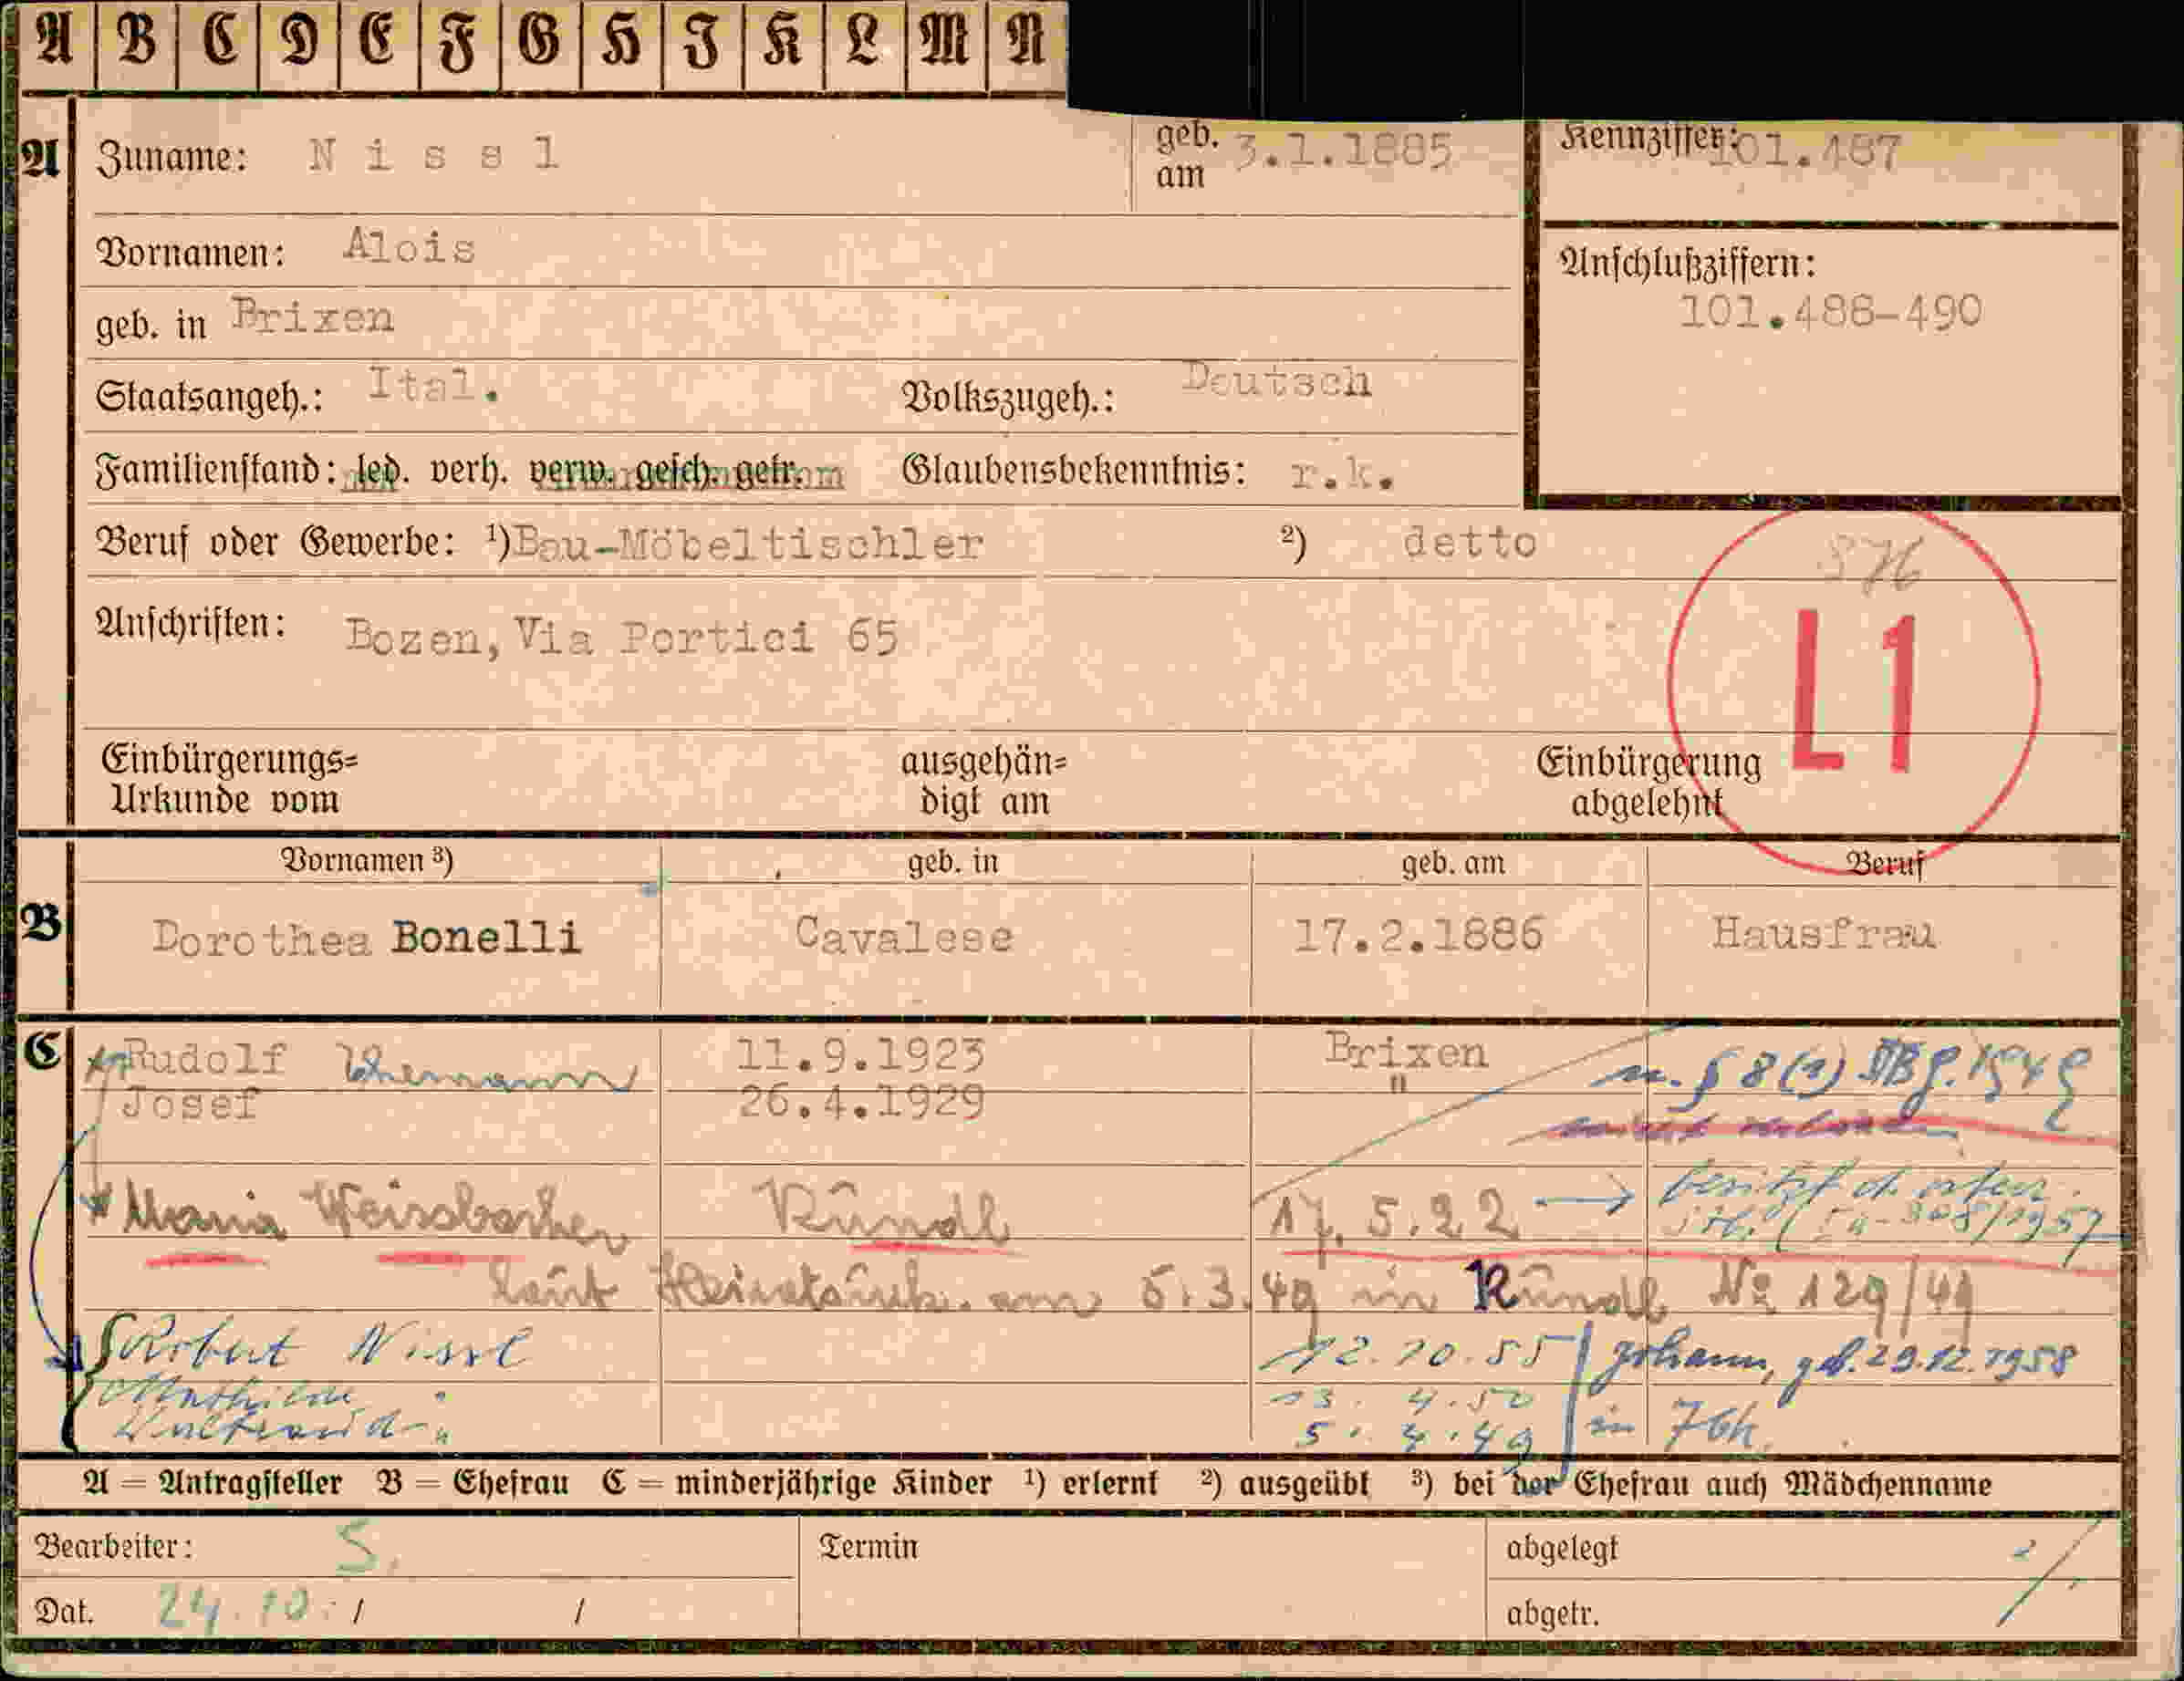 A B C D E F G H J K L M N
A Zuname: Nissl geb. am 3.1.1885 Kennziffer: 101.487
Vornamen: Alois Anschlußziffern:
101.488-490
geb. in Brixen
Staatsangeh.: Ital. Volkszugeh.: Deutsch
Familienstand: led. verh. verw. gesch. getr. Glaubensbekenntnis: r.k.
Beruf oder Gewerbe: ¹) Bau-Möbeltischler ²) detto 576
Anschriften: Bozen, Via Portici 65
L1
Einbürgerungs= ausgehän= Einbürgerung
Urkunde vom digt am abgelehnt
Vornamen ³) geb. in geb. am Beruf
B Dorothea Bonelli Cavalese 17.2.1886 Hausfrau
C Rudolf Ehemann 11.9.1923 Brixen n. § 8(1) 1949
Josef 26.4.1929 "
Maria Weissbacher Kundl 17.5.22 → besitzt d.
1957
laut Heiratsurk. am 5.3.49 in Kundl No 129/49
Robert Nissl 12.10.55 Johann, geb. 29.12.1958
Mathilde " 13. 4.50 in Ibk.
Waltraud - " 5. 4.49
A = Antragsteller B = Ehefrau C = minderjährige Kinder ¹) erlernt ²) ausgeübt ³) bei der Ehefrau auch Mädchenname
Bearbeiter: S. Termin abgelegt
Dat. 24.10. / / abgetr.